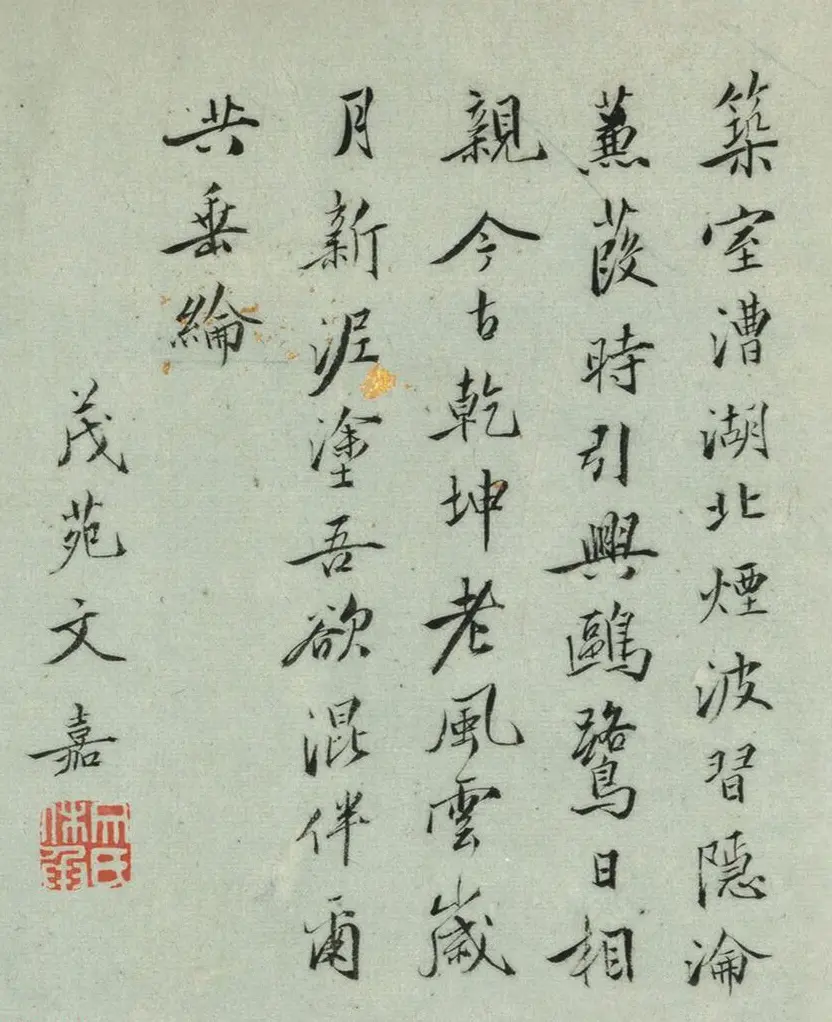 築室漕湖北煙波習隱淪
蒹葭時引興鷗鷺日相
親今古乾坤老風雲歲
月新泥塗吾欲混伴爾
共垂綸
茂苑文嘉
文氏休承